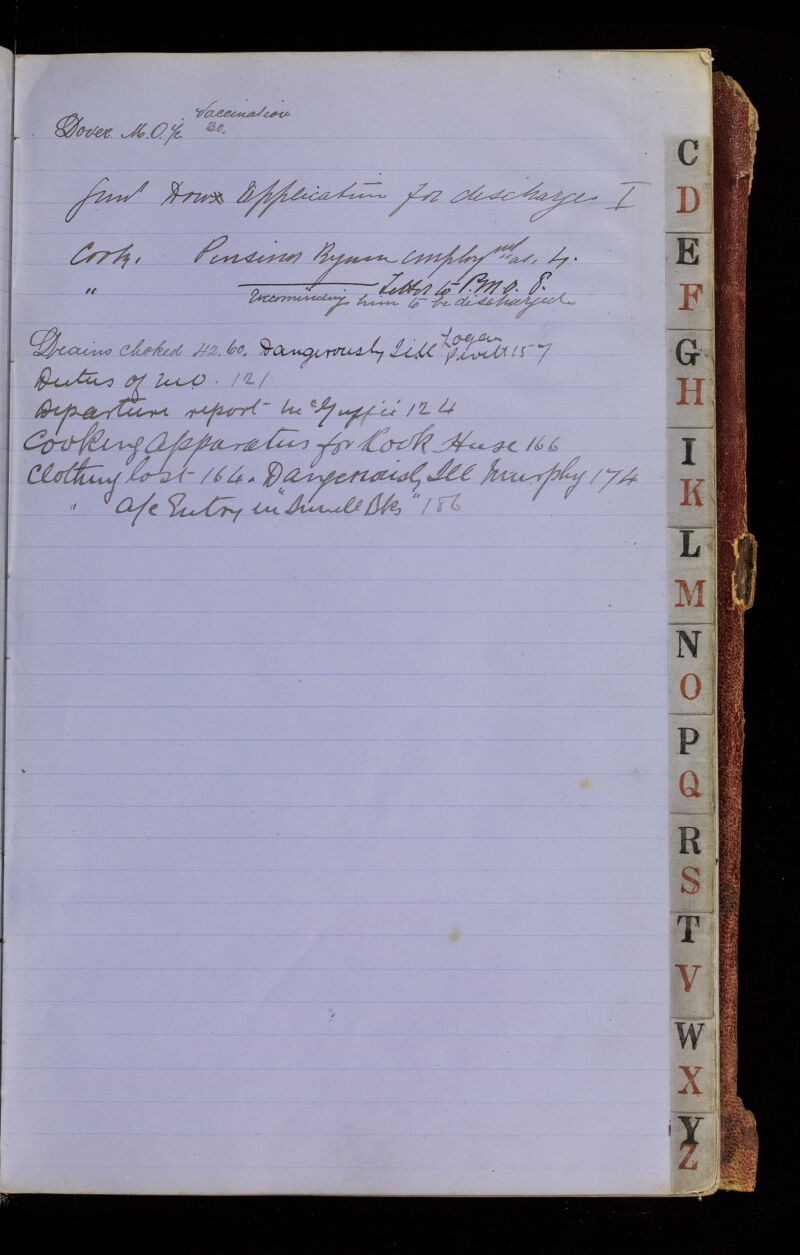 Vaccination
Dover M.O. i/c 30.
Application for discharge I
Cook. Pensioner Ryan employ as. 4.
" Letter to P.M.O. 8.
Recommending him to be discharged
Drains choked 42.60. Dangerously Ill Logan 157
Duties of M.O. 121
Departure report McGuffie 124
Cooking Apparatus for Kook House 166
Clothing lost 164. Dangerously Ill Murphy 174
" a/c Entry in " Bks" 186
C
D
E
F
G
H
I
K
L
M
N
O
P
Q
R
S
T
V
W
X
Y
Z